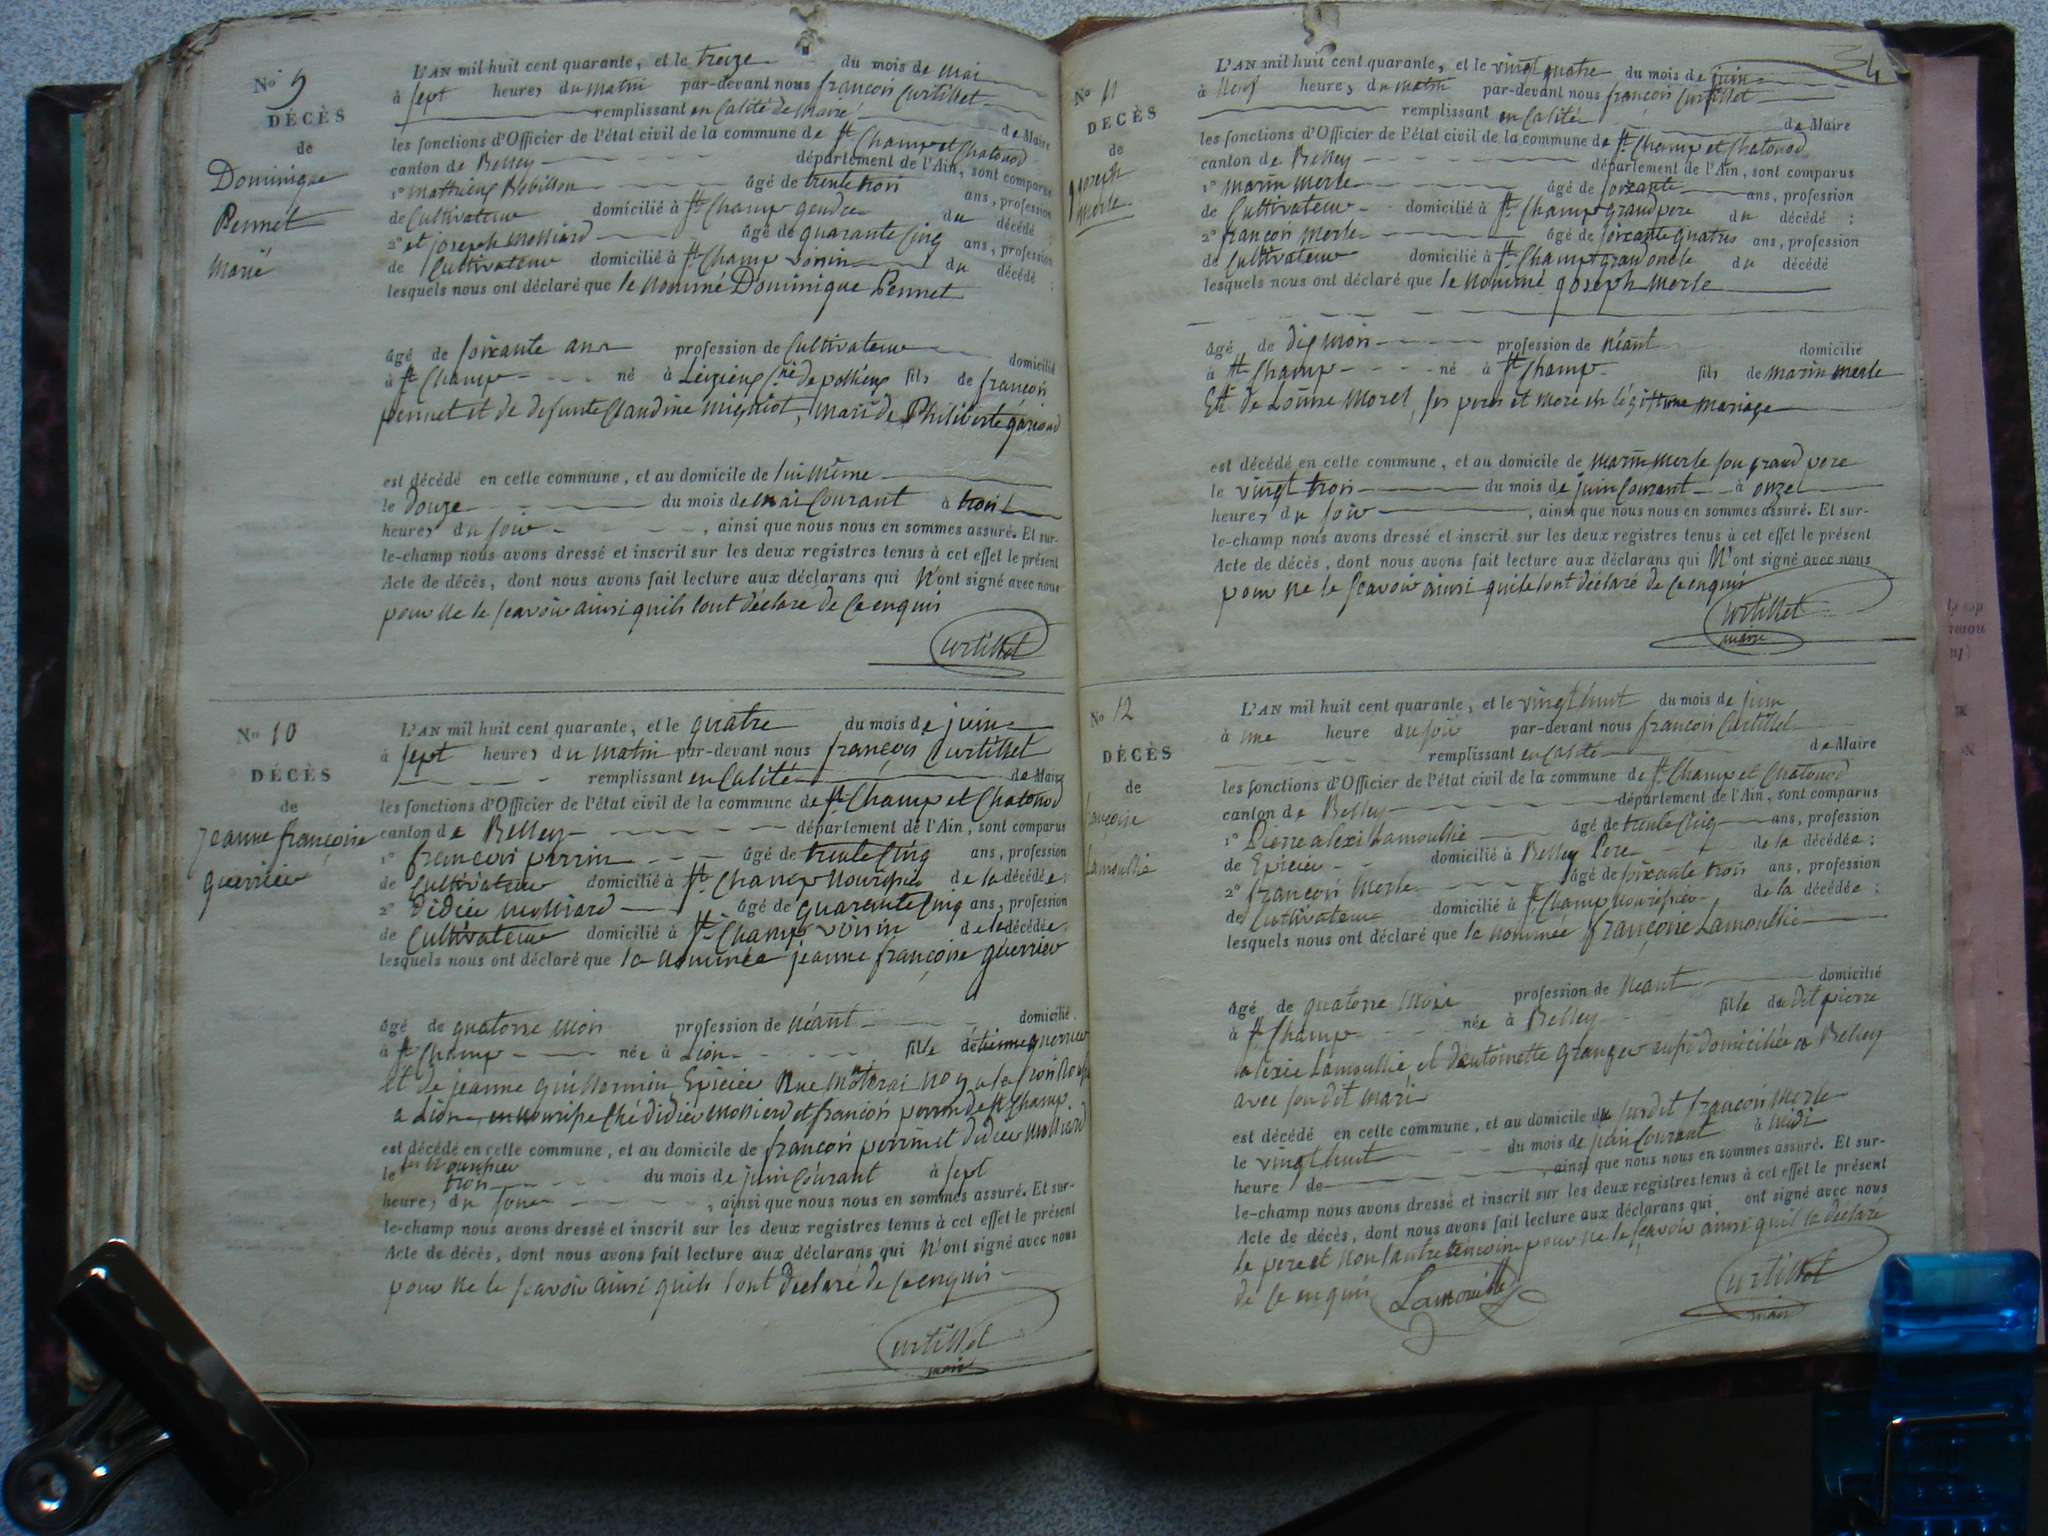 No 9
DÉCÈS
de
Dominique
Pennet
marié
L'AN mil huit cent quarante, et le treize du mois de mai
à sept heures du matin par-devant nous françois Curtillet
remplissant en Calité de Maire
les fonctions d'Officier de l'état civil de la commune de St Champ et Chatonod de Maire
canton de Belley département de l'Ain, sont comparus
1° mathieux Robillon âgé de trente trois ans, profession
de Cultivateur domicilié à St Champ gendre du décédé ;
2° et joseph Molliard âgé de quarante Cinq ans, profession
de Cultivateur domicilié à St Champ voisin du décédé ;
lesquels nous ont déclaré que le Nommé Dominique Pennet
âgé de soixante ans profession de Cultivateur domicilié
à St Champ né à Léizieux Cne de pollieux fils de françois
pennet et de defunte Claudine mignot, mari de Philiberte
est décédé en cette commune, et au domicile de lui même
le douze du mois de mai Courant à trois
heures du soir , ainsi que nous nous en sommes assuré. Et sur-
le-champ nous avons dressé et inscrit sur les deux registres tenus à cet effet le présent
Acte de décès, dont nous avons fait lecture aux déclarans qui N'ont signé avec nous
pour ne le scavoir ainsi quils lont déclare de Ce enquis
Curtillet
No 10
DÉCÈS
de
jeanne françoise
guerrier
L'AN mil huit cent quarante, et le quatre du mois de juin
à sept heures du matin par-devant nous françois Curtillet
remplissant en Calité de Maire
les fonctions d'Officier de l'état civil de la commune de St Champ et Chatonod
canton de Belley département de l'Ain, sont comparus
1° françois perrin âgé de trente Cinq ans, profession
de Cultivateur domicilié à St Champ Nouricier de la décédée ;
2° Didier Molliard âgé de quarante Cinq ans, profession
de Cultivateur domicilié à St Champ voisin de la décédée ;
lesquels nous ont déclaré que la Nommée jeanne françoise guerrier
âgé de quatorse mois profession de Néant domicilié
à St Champ née à Lion fille détienne guerrier
et de jeanne guillermin Epicier Rue
a Lion en nourise Ché didier Molliard et françois perrin de St Champ
est décédé en cette commune, et au domicile de françois perrin et didier Molliard
le trois du mois de juin Courant à sept
heures du soir , ainsi que nous nous en sommes assuré. Et sur-
le-champ nous avons dressé et inscrit sur les deux registres tenus à cet effet le présent
Acte de décès, dont nous avons fait lecture aux déclarans qui N'ont signé avec nous
pour Ne le scavoir ainsi quils lont Declaré de Ce enquis
Curtillet
maire
34
No 11
DÉCÈS
de
joseph
merle
L'AN mil huit cent quarante, et le vingt quatre du mois de juin
à Neuf heures du matin par-devant nous françois Curtillet
remplissant en Calité de Maire
les fonctions d'Officier de l'état civil de la commune de St Champ et Chatonod
canton de Belley département de l'Ain, sont comparus
1° marin merle âgé de soixante ans, profession
de Cultivateur domicilié à St Champ grand pere du décédé ;
2° françois Merle âgé de soixante quatre ans, profession
de Cultivateur domicilié à St Champ grand oncle du décédé
lesquels nous ont déclaré que le Nommé joseph merle
âgé de dix mois profession de Néant domicilié
à St Champ né à St Champ fils de marin merle
Et de Louise Morel, ses peres et mere en légittime mariage
est décédé en cette commune, et au domicile de marin merle son grand pere
le vingt trois du mois de juin Courant à onze
heures du soir , ainsi que nous nous en sommes assuré. Et sur-
le-champ nous avons dressé et inscrit sur les deux registres tenus à cet effet le présent
Acte de décès, dont nous avons fait lecture aux déclarans qui N'ont signé avec nous
pour Ne le scavoir ainsi quils lont déclaré de Ce enquis
Curtillet
maire
No 12
DÉCÈS
de
ancoise
Lamoullie
L'AN mil huit cent quarante, et le vingt huit du mois de juin
à une heure du soir par-devant nous françois Curtillet
remplissant en Calité de Maire
les fonctions d'Officier de l'état civil de la commune de St Champ et Chatonod
canton de Belley département de l'Ain, sont comparus
1° Pierre alexi Lamoullie âgé de trente Cinq ans, profession
de Epicier domicilié à Belley Pere de la décédée ;
2° françois Merle âgé de soixante trois ans, profession
de Cultivateur domicilié à St Champ nouricier de la décédée ;
lesquels nous ont déclaré que la Nommée françoise Lamoullie
âgé de quatorse Mois profession de Neant domicilié
à St Champ née à Belley fille du dit pierre
alexie Lamoullie et dantoinette Granger domiciliée a Belley
avec son dit mari
est décédé en cette commune, et au domicile du susdit françois Merle
le vingt huit du mois de juin Courant à midi
heure de , ainsi que nous nous en sommes assuré. Et sur-
le-champ nous avons dressé et inscrit sur les deux registres tenus à cet effet le présent
Acte de décès, dont nous avons fait lecture aux déclarans qui ont signé avec nous
le père et Non lautre témoin pour ne le scavoir ainsi quil la déclaré
de Ce enquis Lamouille
Curtillet
maire